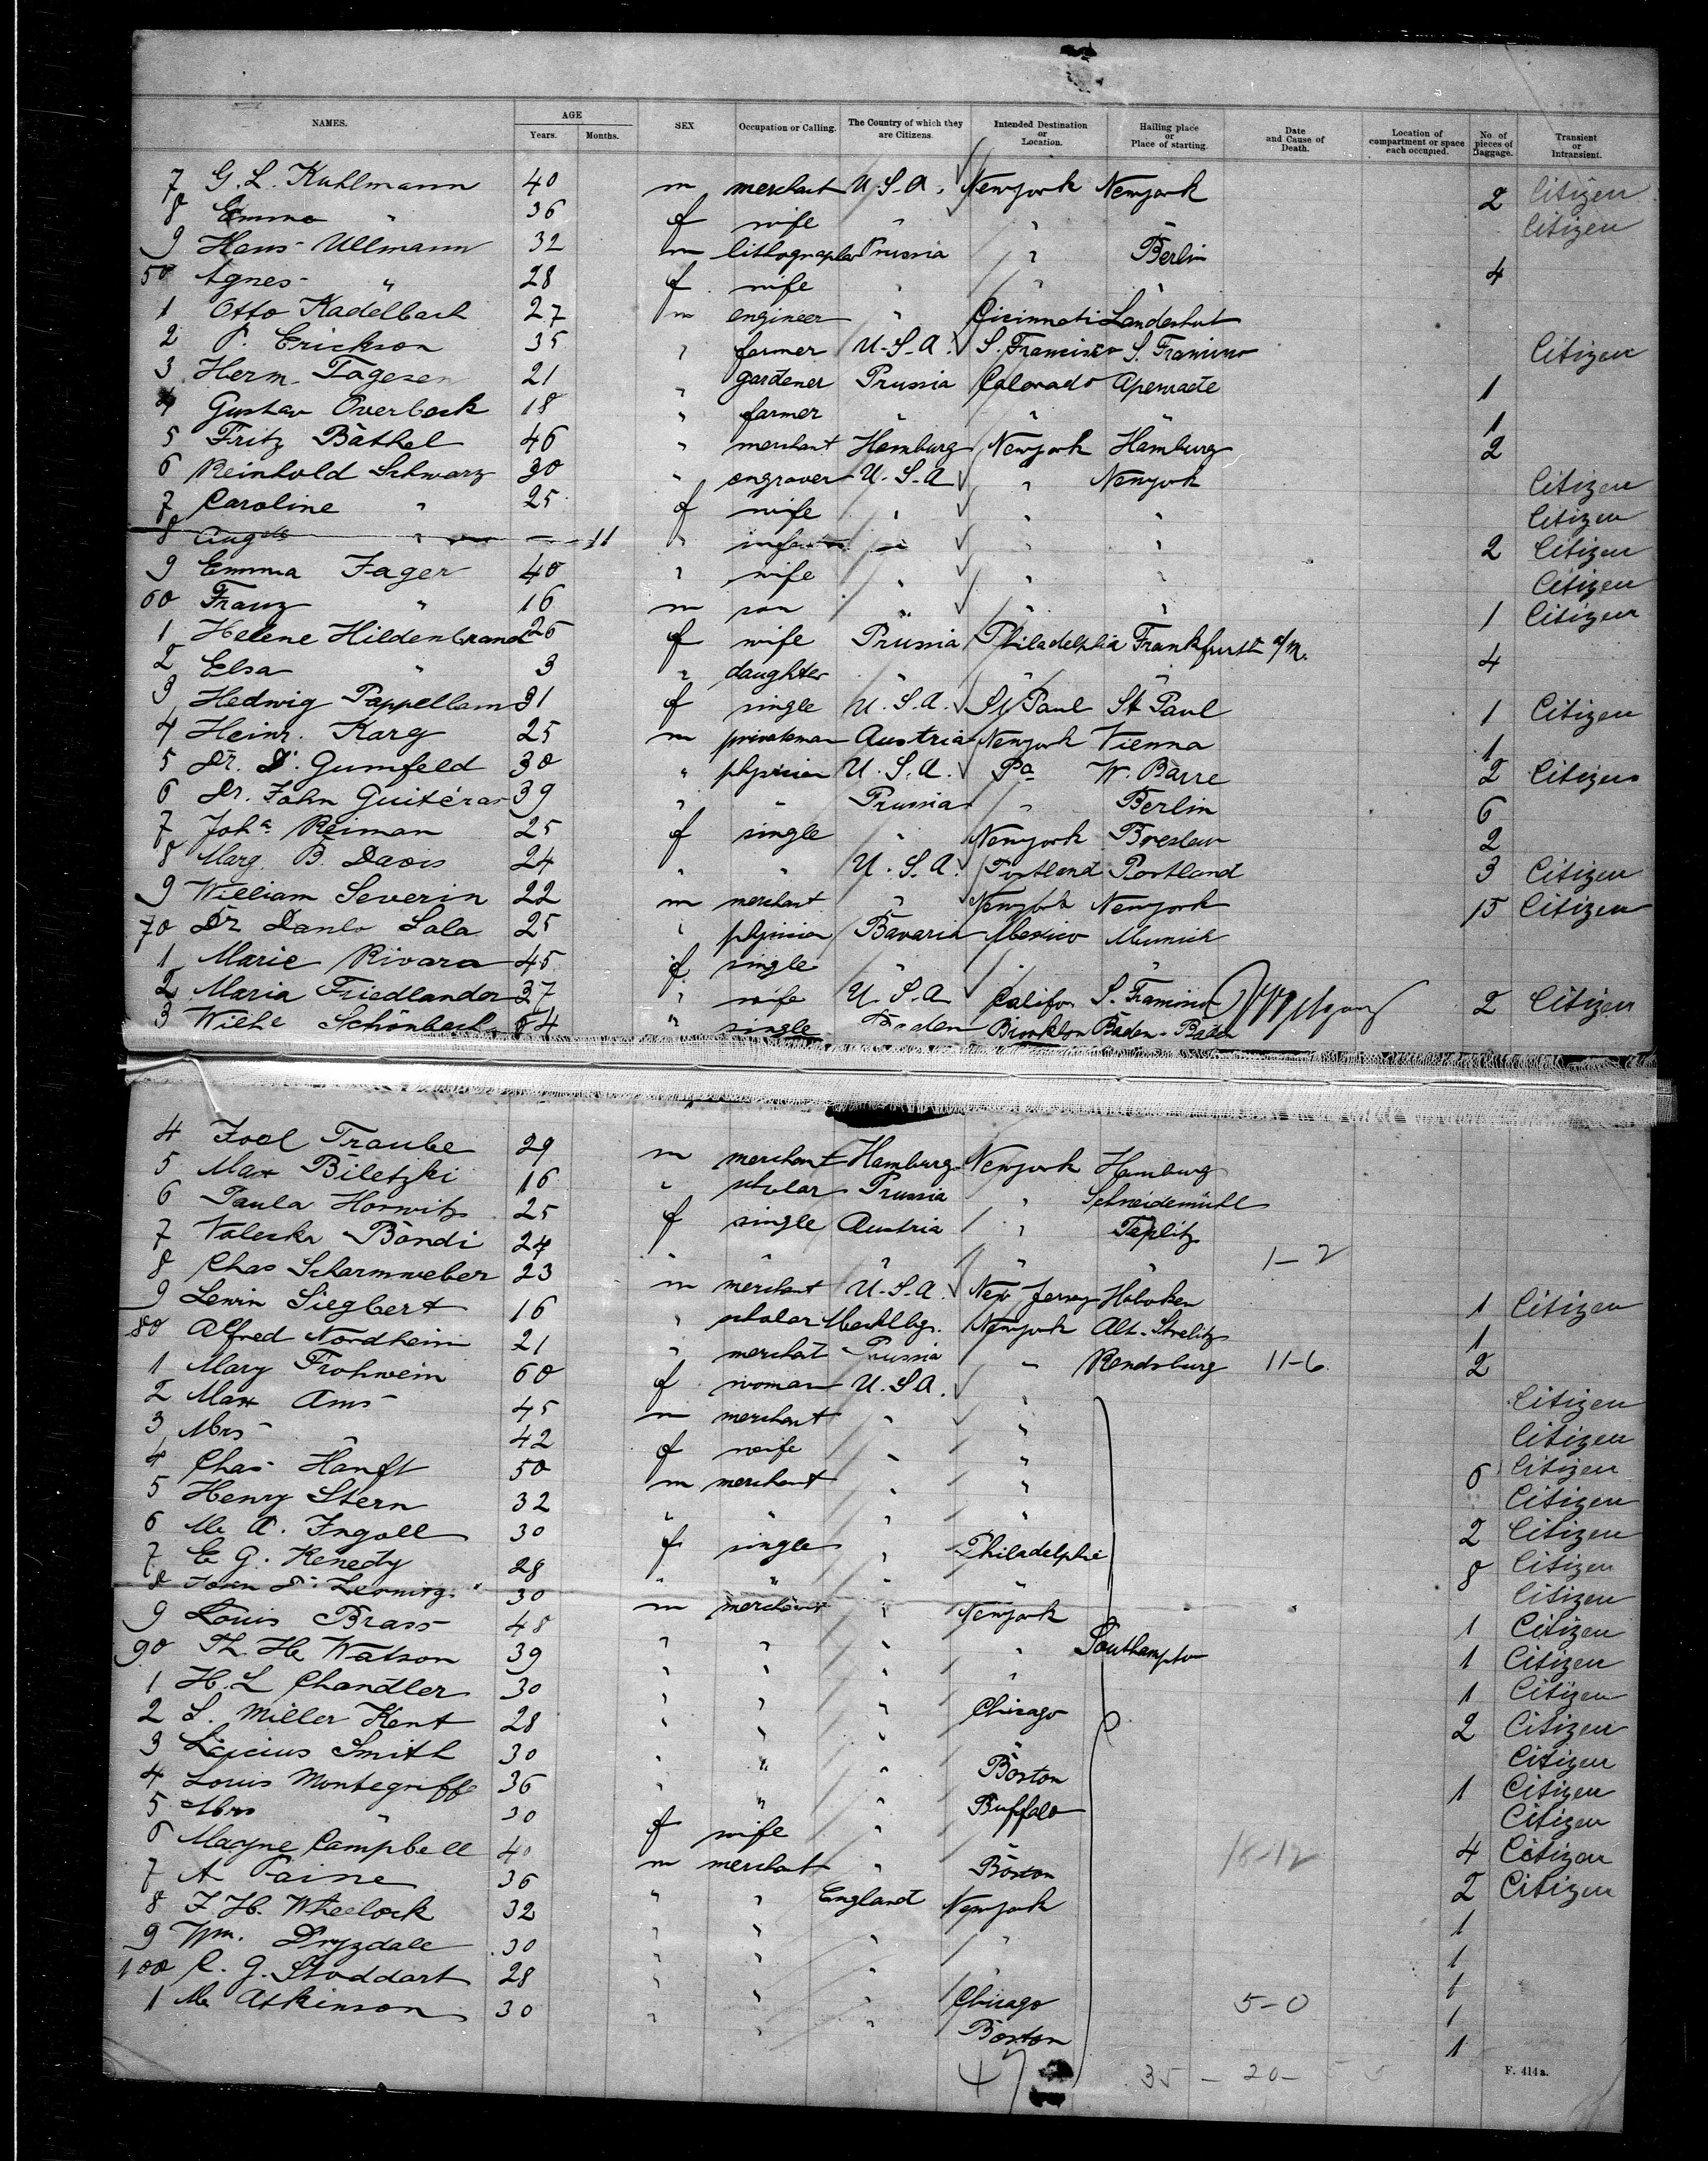 NAMES. AGE Years. Months. SEX Occupation or Calling. The Country of which they are Citizens. Intended Destination or Location. Hailing place or Place of starting. Date and Cause of Death. Location of compartment or space each occupied. No. of pieces of Baggage. Transient or Intransient.
7 G. L. Kuhlmann 40 m merchant U.S.A. Newyork Newyork 2 Citizen
8 Emma " 36 f wife " " " Citizen
9 Hans Ullmann 32 m lithographer Prussia " Berlin
50 Agnes " 28 f wife " " " 4
1 Otto Kadelbach 27 m engineer " Cicinnati Landeshut
2 P. Erickson 35 " farmer U.S.A. S. Francisco S. Francisco Citizen
3 Herm. Tagesen 21 " gardener Prussia Colorado Apenrade 1
4 Gustav Overbeck 18 " farmer " " " 1
5 Fritz Bäthel 46 " merchant Hamburg Newyork Hamburg 2
6 Reinhold Schwarz 30 " engraver U.S.A " Newyork Citizen
7 Caroline " 25 f wife " " " Citizen
8 Aug " — 11 " infant " " " 2 Citizen
9 Emma Jager 40 " wife " " " Citizen
60 Franz " 16 m son " " " 1 Citizen
1 Helene Hildenbrand 26 f wife Prussia Philadelphia Frankfurth a/M.
2 Elsa " 3 " daughter " " " 4
3 Hedwig Pappellam 31 f single U.S.A. St Paul St Paul 1 Citizen
4 Heinr. Karg 25 m privateman Austria Newyork Vienna 1
5 Dr. D. Gumfeld 30 " physician U.S.A. Pa W. Barre 2 Citizen
6 Dr. John Guitéras 39 " " Prussia " Berlin 6
7 Joha Reiman 25 f single " Newyork Breslau 2
8 Marg. B. Davis 24 " " U.S.A. Portland Portland 3 Citizen
9 William Severin 22 m merchant " Newyork Newyork 15 Citizen
70 Dr Danlo Sala 25 " physician Bavaria Mexico Munich
1 Marie Rivara 45 f single " " "
2 Maria Friedlander 37 " wife U.S.A Califor. S. Francisco 2 Citizen
3 Wilhe Schönbach 24 " single Baden Brooklon Baden-Baden
4 Joel Traube 29 m merchant Hamburg Newyork Hamburg
5 Max Biletzki 16 " scholar Prussia " Schneidemühl
6 Paula Horwitz 25 f single Austria " Teplitz
7 Valeska Bondi 24 " " " " " 1-2
8 Chas Scharmweber 23 m merchant U.S.A. New Jersey Hoboken 1 Citizen
9 Lewin Siegbert 16 " scholar Mecklbg. Newyork Alt-Strelitz 1
80 Alfred Nordheim 21 " merchat Prussia " Rendsburg 11-6 2
1 Mary Frohwein 60 f woman U.S.A. " Citizen
2 Max Ams 45 m merchant " " Citizen
3 Mrs " 42 f wife " " 6 Citizen
4 Chas Hanft 50 m merchant " " Citizen
5 Henry Stern 32 " " " " 2 Citizen
6 M. A. Ingoll 30 f single " Philadelphia 8 Citizen
7 E G. Kenedy 28 " " " " Citizen
8 John 30 m merchant " Newyork 1 Citizen
9 Louis Brass 48 " " " " Southampton 1 Citizen
90 Th. H. Watson 39 " " " " 1 Citizen
1 H. L Chandler 30 " " " Chicago 2 Citizen
2 S. Miller Kent 28 " " " " Citizen
3 Lucius Smith 30 " " " Boston 1 Citizen
4 Louis Montegriffo 36 " " " Buffalo Citizen
5 Mrs " 30 f wife " " 4 Citizen
6 Mayne Campbell 40 m merchant " Boston 18-12 2 Citizen
7 A Paine 36 " " England Newyork 1
8 F. H. Wheelock 32 " " " " 1
9 Wm. Dryzdale 30 " " " " 1
100 C. G. Stoddart 28 " " " Chicago 5-0 1
1 M. Atkinson 30 " " " Boston 1
47 35 - 20 - 5
F. 414a.